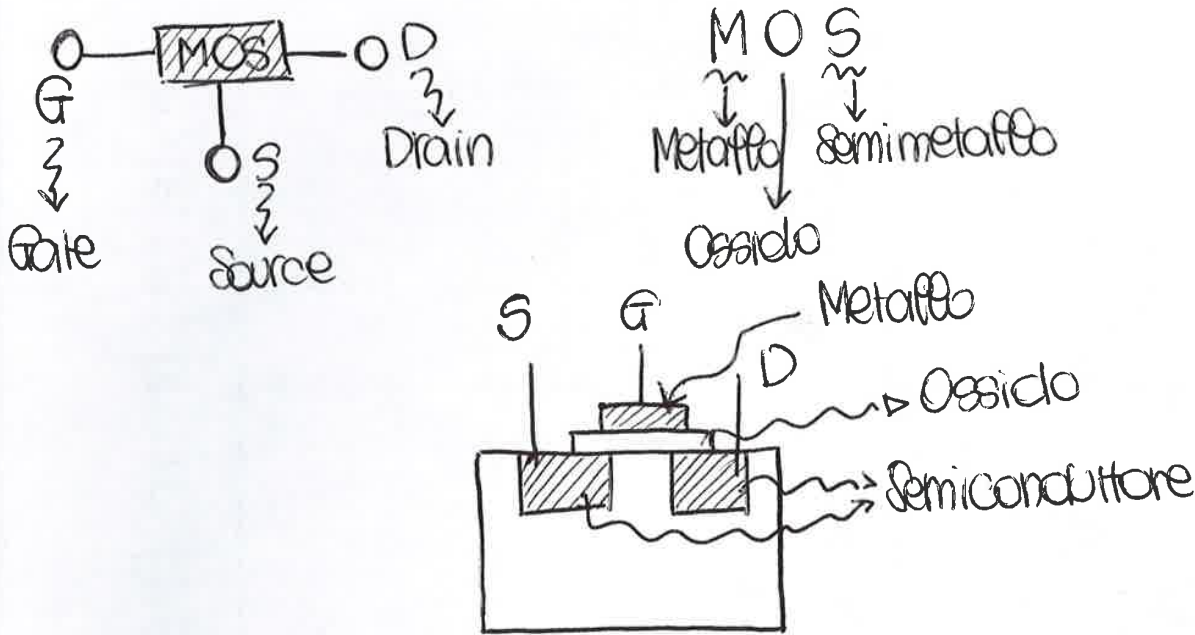 MOS
D
G
Drain
S
Gate
Source
M O S
Metallo
Semimetallo
Ossido
S
G
Metallo
D
Ossido
Semiconduttore